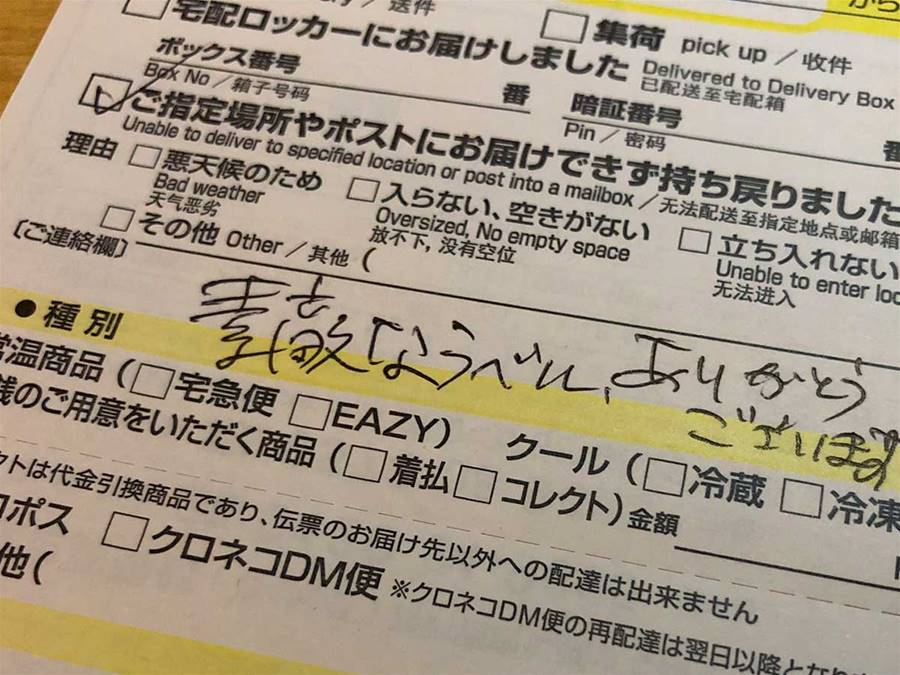 から
very / 送件
□ 宅配ロッカーにお届けしました
Delivered to Delivery Box
已配送至宅配箱
□ 集荷 pick up / 收件
ボックス番号
Box No / 箱子号码
番
暗証番号
Pin / 密码
番
☑ ご指定場所やポストにお届けできず持ち戻りました
Unable to deliver to specified location or post into a mailbox / 无法配送至指定地点或邮箱
理由 □ 悪天候のため
Bad weather
天气恶劣
□ 入らない、空きがない
Oversized, No empty space
放不下,没有空位
□ 立ち入れない
Unable to enter loc
无法进入
□ その他 Other / 其他 (
〔ご連絡欄〕
素敵なラベル、ありがとう
ございます
● 種別
常温商品 ( □ 宅急便 □ EAZY) クール ( □ 冷蔵 □ 冷凍
銭のご用意をいただく商品 ( □ 着払 □ コレクト) 金額
クトは代金引換商品であり、伝票のお届け先以外への配達は出来ません
コポス □ クロネコDM便 ※クロネコDM便の再配達は翌日以降となりま
他 (